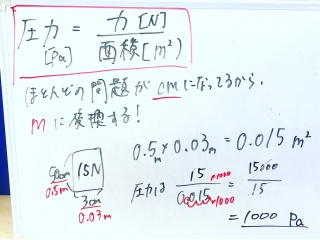 圧力[Pa] = 力[N] / 面積[m²]
ほとんどの問題が cmになってるから。
mに変換する!
0.5m × 0.03m = 0.015 m²
50cm 15N
0.5m
3cm
0.03m
圧力は 15×1000 / 0.015×1000 = 15000 / 15
= 1000 Pa